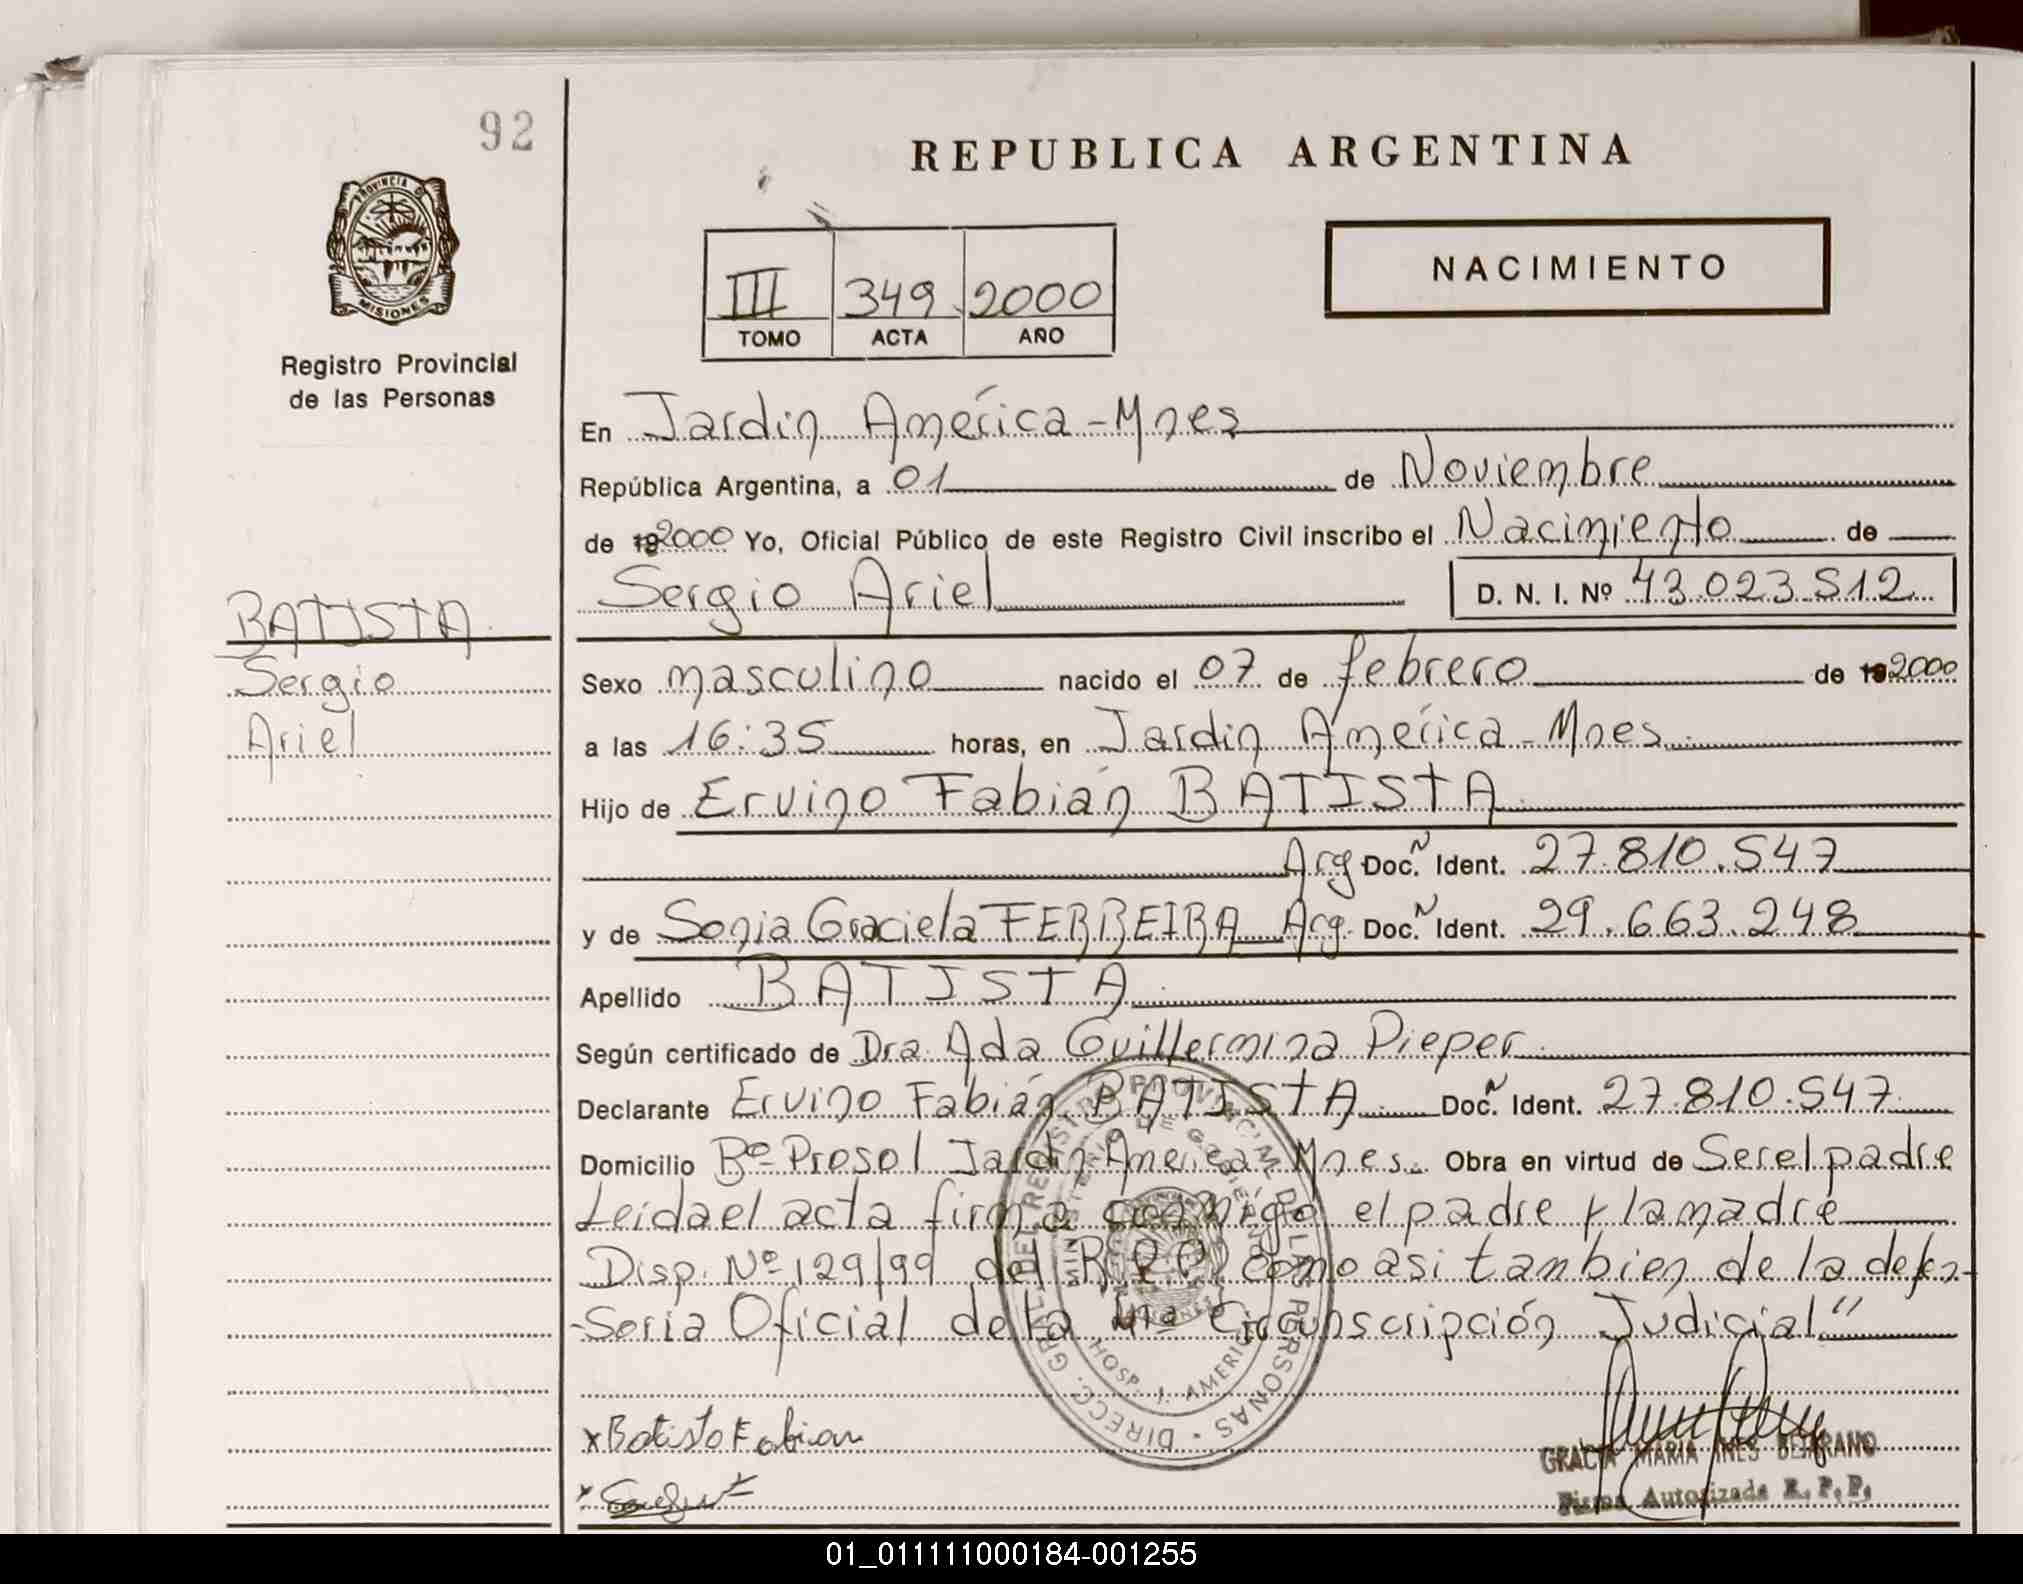 92
REPUBLICA ARGENTINA
PROVINCIA D MISIONES
NACIMIENTO
III 349 2000
TOMO ACTA AÑO
Registro Provincial
de las Personas
En Jardin América - Mnes
República Argentina, a 01 de Noviembre
de 192000 Yo, Oficial Público de este Registro Civil inscribo el Nacimiento de
Sergio Ariel D. N. I. Nº 43.023.512
BATISTA
Sergio
Ariel
Sexo masculino nacido el 07 de febrero de 192000
a las 16:35 horas, en Jardin América - Mnes.
Hijo de Ervino Fabián BATISTA
Arg Doc. Ident. 27.810.547
y de Sonia Graciela FERREIRA Arg. Doc. Ident. 29.663.248
Apellido BATISTA
Según certificado de Dra. Ada Guillermina Pieper
Declarante Ervino Fabián BATISTA Doc. Ident. 27.810.547
Domicilio Bº Prosol Jardin America Mnes. Obra en virtud de Ser el padre
Leida el acta firma conmigo el padre y la madre
Disp. Nº 129/99 del R.P.P. como asi tambien de la defen-
-soria Oficial de la 4ta Circunscripción Judicial"
DIRECC. GRAL. DEL REGISTRO PROVINCIAL DE LAS PERSONAS
MINISTERIO DE GOBIERNO
HOSP. J. AMERICA
x Batista Fabian
GRACIA MARIA INES BELTRAMO
Firma Autorizada R. P. P.
01_011111000184-001255